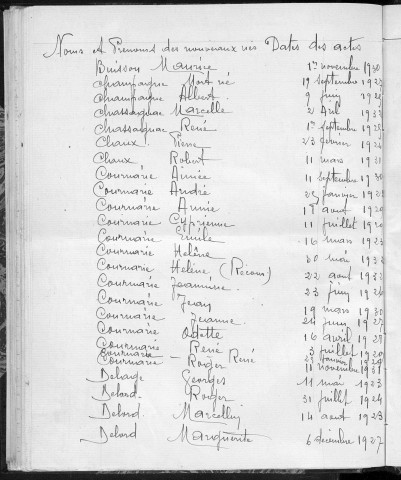 Noms et Prénoms des nouveaux nés Dates des actes
Buisson Maurice 1er novembre 1930
Champagne Mort né 19 septembre 1923
Champagne Albert 9 juin
Chassagnac Marcelle 2 Avril
Chassagnac René 1er septembre
Chaux Pierre 23 février
Chaux Robert 11 mars
Cournarie Aimée 11 septembre
Cournarie André 25 janvier
Cournarie Annie août
Cournarie Cyprienne 11 juillet
Cournarie Emile 16 mars 1923
Cournarie Hélène 20 mai 1932
Cournarie Hélène (Recon) 22 août 1932
Cournarie Jeannine 23 juin 1926
Cournarie Jean 19 mars 1930
Cournarie Jeanne 24 juin 1927
Cournarie Odette 16 avril 1927
Cournarie René 3 juillet 1920
Cournarie René janvier
Cournarie Roger 11 novembre 1931
Georges 11 mai 1923
Debord Roger 31 juillet 1924
Debord Marcellin 14 août 1923
Debord Marguerite 6 décembre 1927